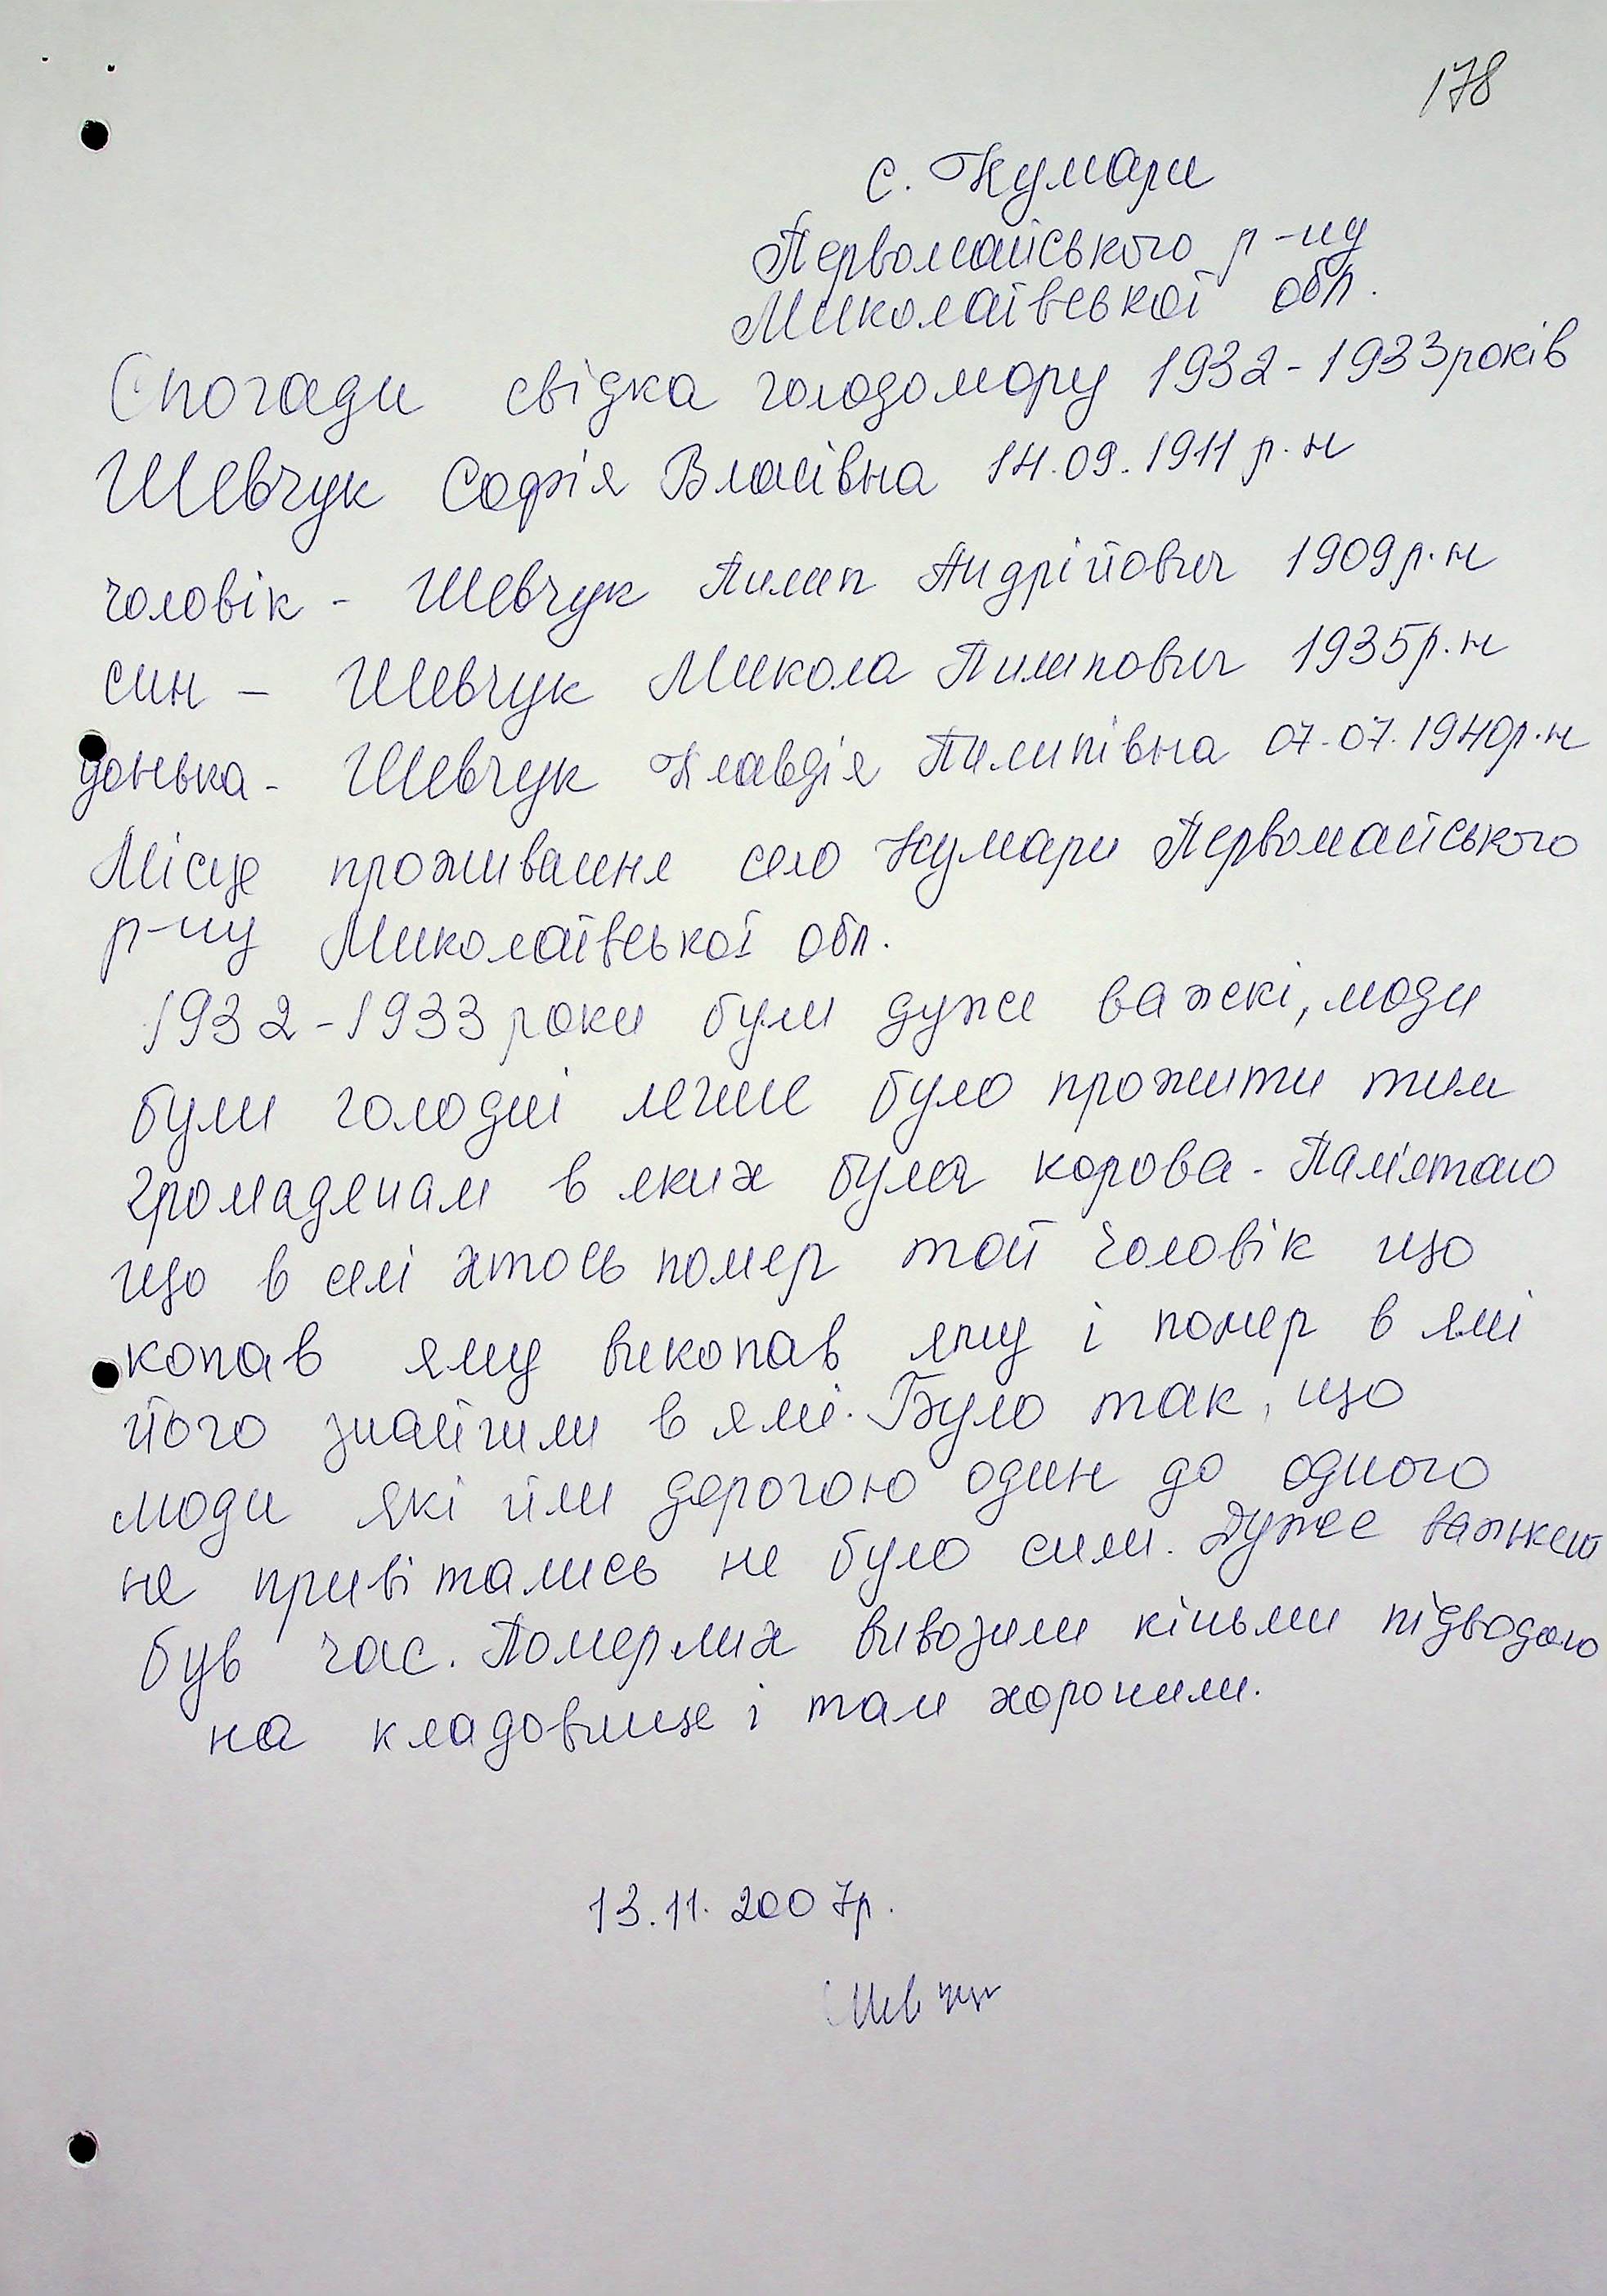 178
с. Кумари
Первомайського р-ну
Миколаївської обл.
Спогади свідка голодомору 1932-1933років
Шевчук Софія Власівна 14.09.1911 р.н
чоловік - Шевчук Пилип Андрійович 1909р.н
син - Шевчук Микола Пилипович 1935р.н
донька - Шевчук Клавдія Пилипівна 07.07.1940р.н
Місце проживання село Кумари Первомайського
р-ну Миколаївської обл.
1932-1933 роки були дуже важкі, люди
були голодні легше було прожити тим
громадянам в яких була корова. Памʼятаю
що в селі хтось помер той чоловік що
копав яму викопав яму і помер в ямі
його знайшли в ямі. Було так, що
люди які йшли дорогою один до одного
не привітались не було сили. Дуже важкий
був час. Померлих вивозили кіньми підводою
на кладовище і там хоронили.
13.11.2007р.
Шевчук